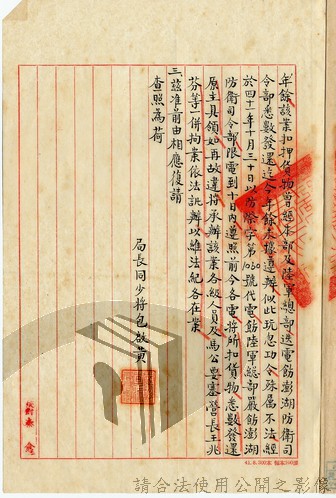 年餘該業扣押貨物曾經本部及陸軍總部送電飭澎湖防衛司
令部悉數發還迄今年餘未據遵辦似此玩忽功令殊屬不法經
於四十一年十月三十日以防際字第1060號代電飭陸軍總部嚴飭澎湖
防衛司令部限電到十日內遵照前今各電將所扣貨物悉數發還
原主具領如再故違將承辦該業各級人員及馬公要塞營長王兆
芬等一併拘案依法訊辦以維法紀各在業
三、茲准前由相應復請
查照為荷
局長同少將包啟黃
請合法使用公開之影像